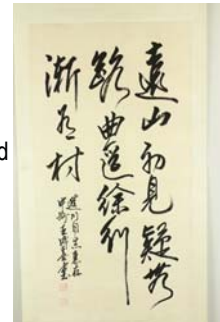 遠山初見疑無
路曲逕徐行
漸有村
d